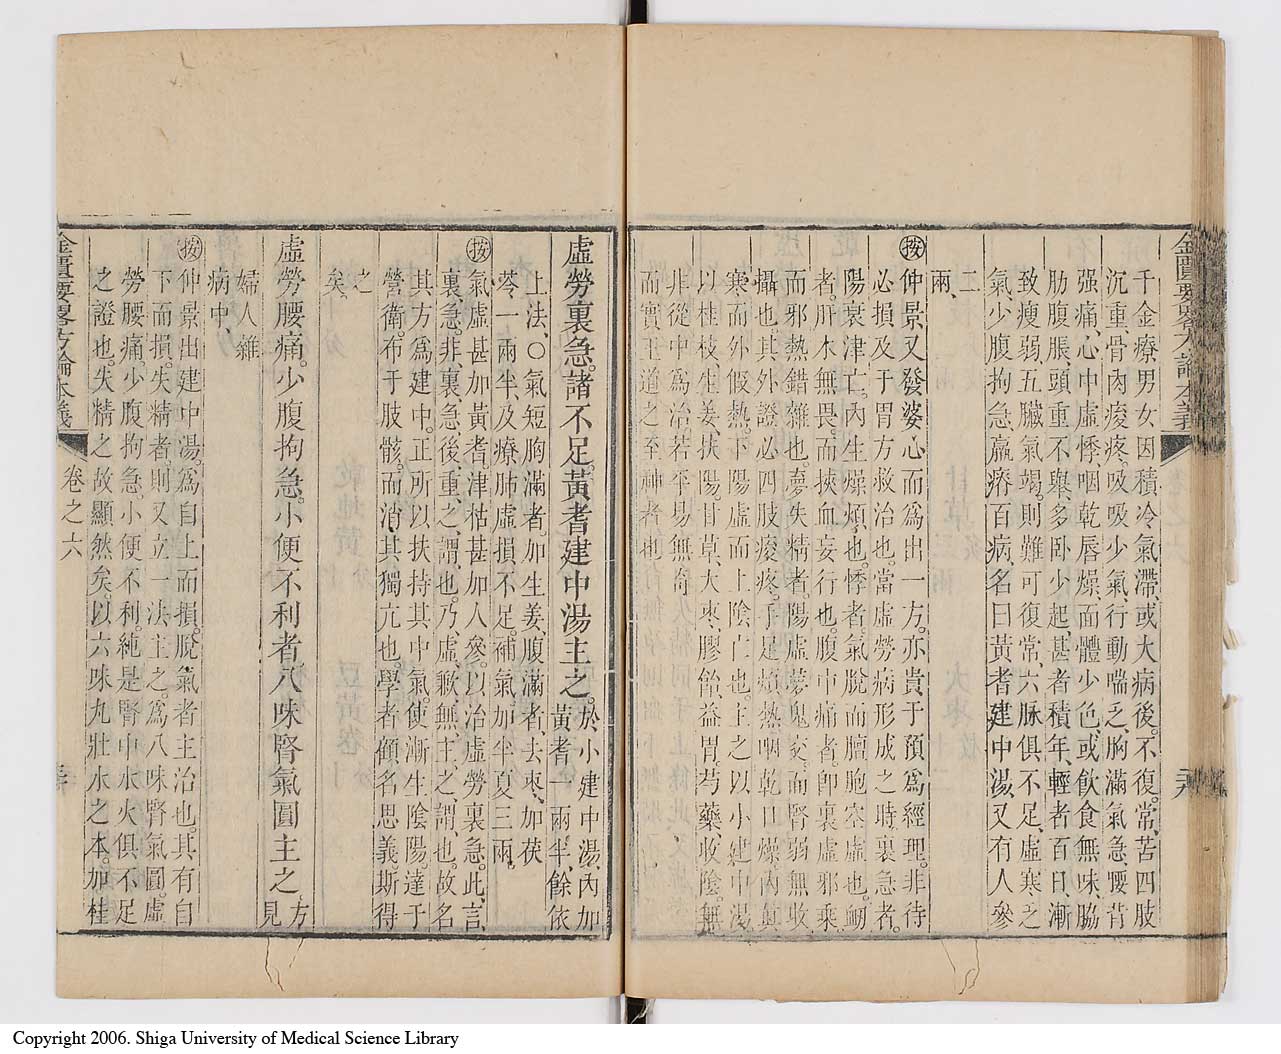 金匱要畧方論本義
千金療男女因積冷氣滯或大病後不復常苦四肢
沉重骨肉痠疼吸吸少氣行動喘乏胸滿氣急腰背
强痛心中虛悸咽乾唇燥面體少色或飲食無味脇
肋腹脹頭重不舉多卧少起甚者積年輕者百日漸
致瘦弱五臟氣竭則難可復常六脉俱不足虛寒乏
氣少腹拘急羸瘠百病名曰黃耆建中湯又有人參
二兩
按仲景又發婆心而爲出一方亦貴于預爲經理非待
必損及于胃方救治也當虛勞病形成之時裏急者
陽衰津亡內生燥煩也悸者氣脫而膻胞空虛也衂
者肝木無畏而挾血妄行也腹中痛者卽裏虛邪乘
而邪熱錯雜也夢失精者陽虛夢鬼交而腎弱無收
攝也其外證必四肢痠疼手足煩熱咽乾口燥內眞
寒而外假熱下陽虛而上陰亡也主之以小建中湯
以桂枝生姜扶陽甘草大枣膠飴益胃芍藥收陰無
非從中爲治若平易無奇
而實王道之至神者也
虛勞裏急諸不足黃耆建中湯主之於小建中湯內加黃耆一兩半餘依
上法○氣短胸滿者加生姜腹滿者去枣加茯
苓一兩半及療肺虛損不足補氣加半夏三兩
按氣虛甚加黃耆津枯甚加人參以治虛勞裏急此言
裏急非裏急後重之謂也乃虛歉無主之謂也故名
其方爲建中正所以扶持其中氣使漸生陰陽達于
營衛布于肢骸而消其獨亢也學者顧名思義斯得
之矣
虛勞腰痛少腹拘急小便不利者八味腎氣圓主之方見
婦人雜病中
按仲景出建中湯爲自上而損脫氣者主治也其有自
下而損失精者則又立一法主之爲八味腎氣圓虛
勞腰痛少腹拘急小便不利純是腎中水火俱不足
之證也失精之故顯然矣以六味丸壯水之本加桂
金匱要畧方論本義
卷之六
Copyright 2006. Shiga University of Medical Science Library